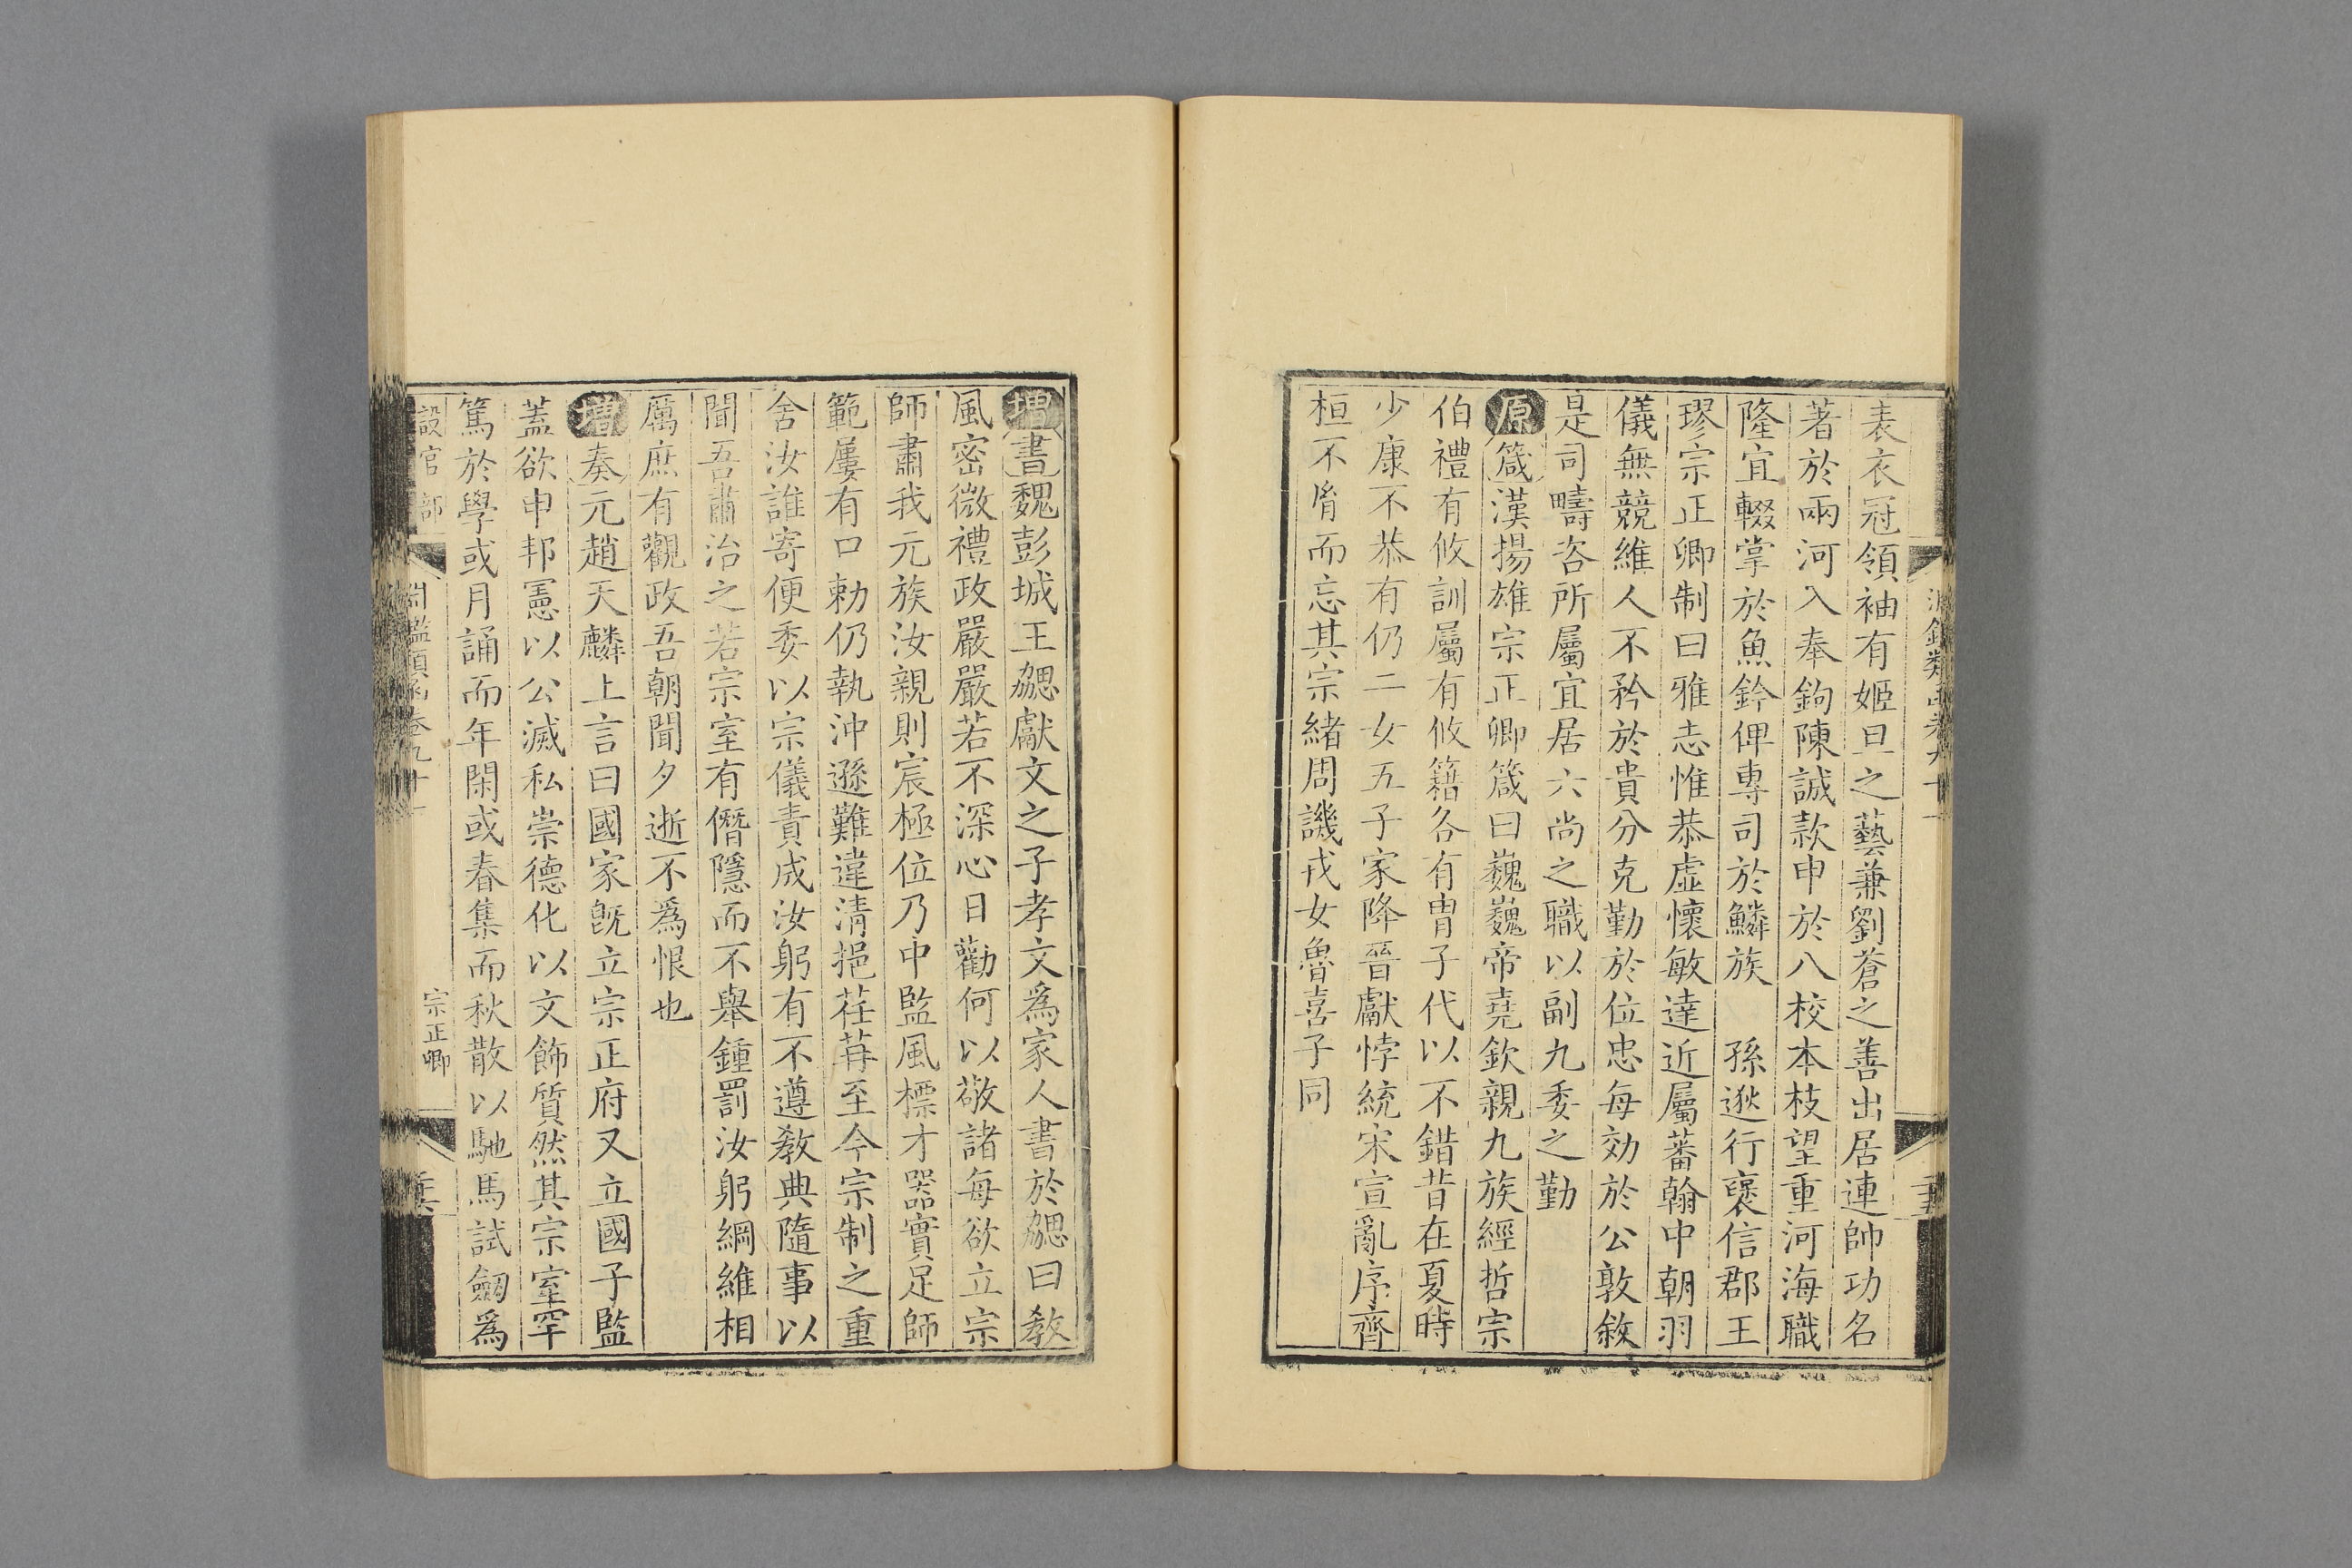 表衣冠領袖有姬旦之藝兼劉蒼之善出居連帥功名
著於兩河入奉鉤陳誠款申於八校本枝望重河海職
隆宜輟掌於魚鈐俾專司於鱗族　孫逖行襃信郡王
璆宗正卿制曰雅志惟恭虛懷敏達近屬蕃翰中朝羽
儀無競維人不矜於貴分克勤於位忠每効於公敦敘
是司疇咨所屬宜居六尚之職以副九委之勤
原箴漢揚雄宗正卿箴曰巍巍帝堯欽親九族經哲宗
伯禮有攸訓屬有攸籍各有胄子代以不錯昔在夏時
少康不恭有仍二女五子家降晉獻悖統宋宣亂序齊
桓不胥而忘其宗緒周譏戎女魯喜子同
增書魏彭城王勰獻文之子孝文爲家人書於勰曰教
風密微禮政嚴嚴若不深心日勸何以敬諸每欲立宗
師肅我元族汝親則宸極位乃中監風標才器實足師
範屢有口勅仍執沖遜難違清挹荏苒至今宗制之重
舍汝誰寄便委以宗儀責成汝躬有不遵教典隨事以
聞吾肅治之若宗室有僭隱而不舉鍾罰汝躬綱維相
厲庶有觀政吾朝聞夕逝不爲恨也
增奏元趙天麟上言曰國家旣立宗正府又立國子監
蓋欲申邦憲以公滅私崇德化以文飾質然其宗室罕
篤於學或月誦而年閑或春集而秋散以馳馬試劒爲
設官部　淵鑑類函卷九十一　宗正卿